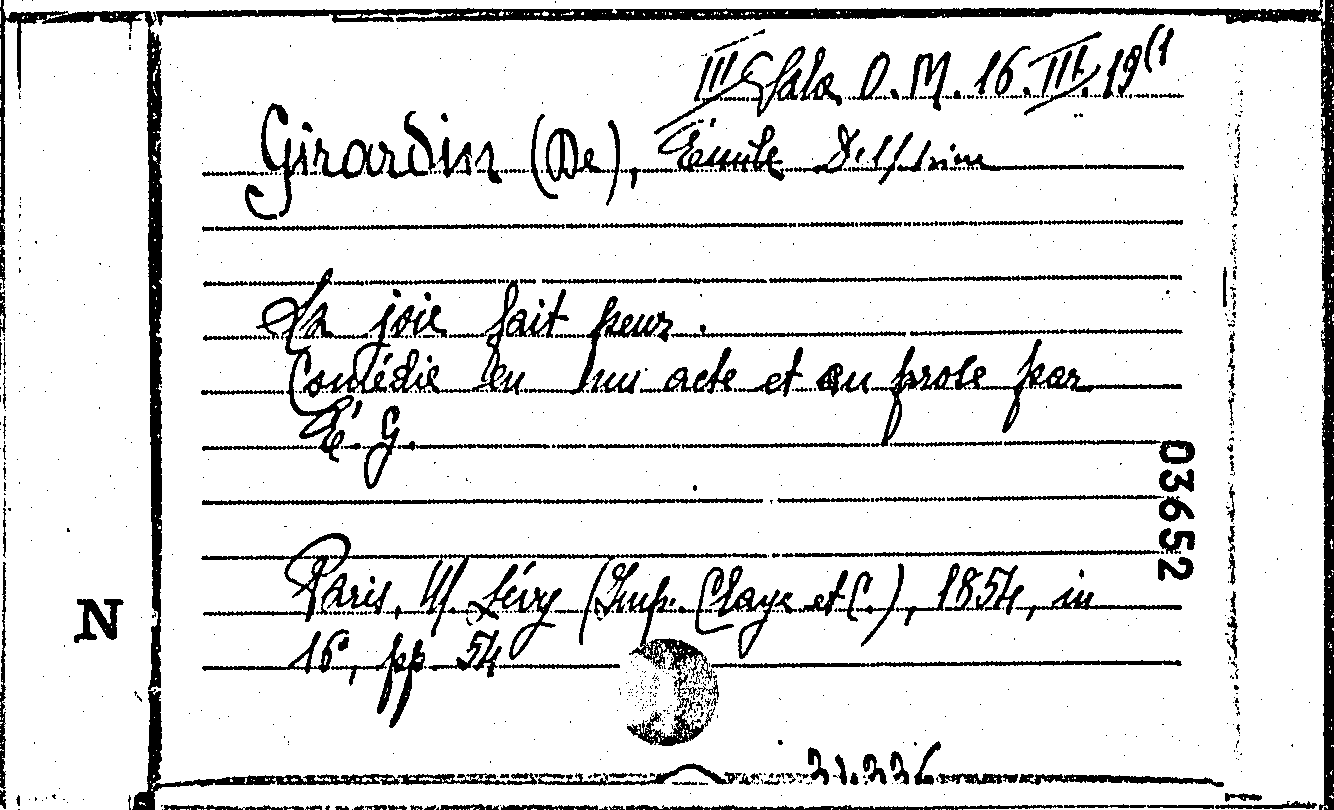 III Sala O. M. 16. III. 19(1
Girardin (De), Émile Delfhine
La joie fait peur.
Comédie en un acte et en prose par
É. G.
03652
Paris, M. Lévy (Imp. Claye et C.), 1854, in
16°, pp. 54
N
31.336